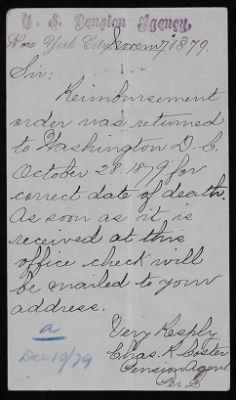 U. S. Pension Agency,
New York City, Novem 7 1879.
Sir:
Reimbursement
order was returned
to Washington D. C.
October 28. 1879 for
correct date of death.
As soon as it is
received at this
office check will
be mailed to your
address.
Very Resply
Chas. R. Coster
Pension Agent
a
Dec 10/79